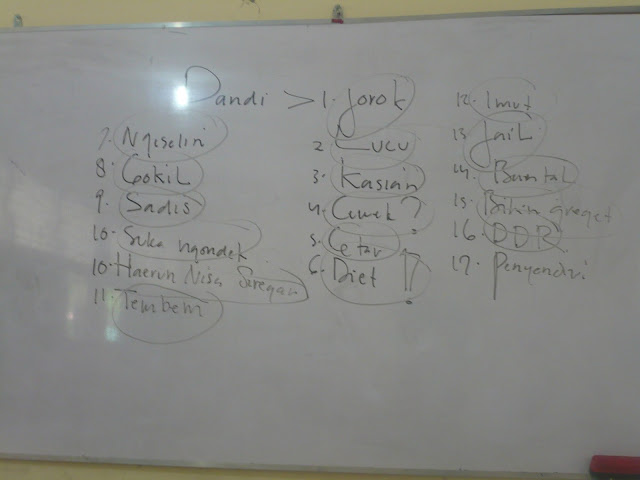 Dandi > 1. Jorok
2. Lucu
3. Kasian
4. Cuwek?
5. Cetar
6. Diet !?
7. Ngeselin
8. Gokil
9. Sadis
10. Suka ngondek
10. Haerun Nisa Siregar
11. Tembem
12. Imut
13. Jail
14. Buntal
15. Bikin greget
16. DDR
17. Penyendiri